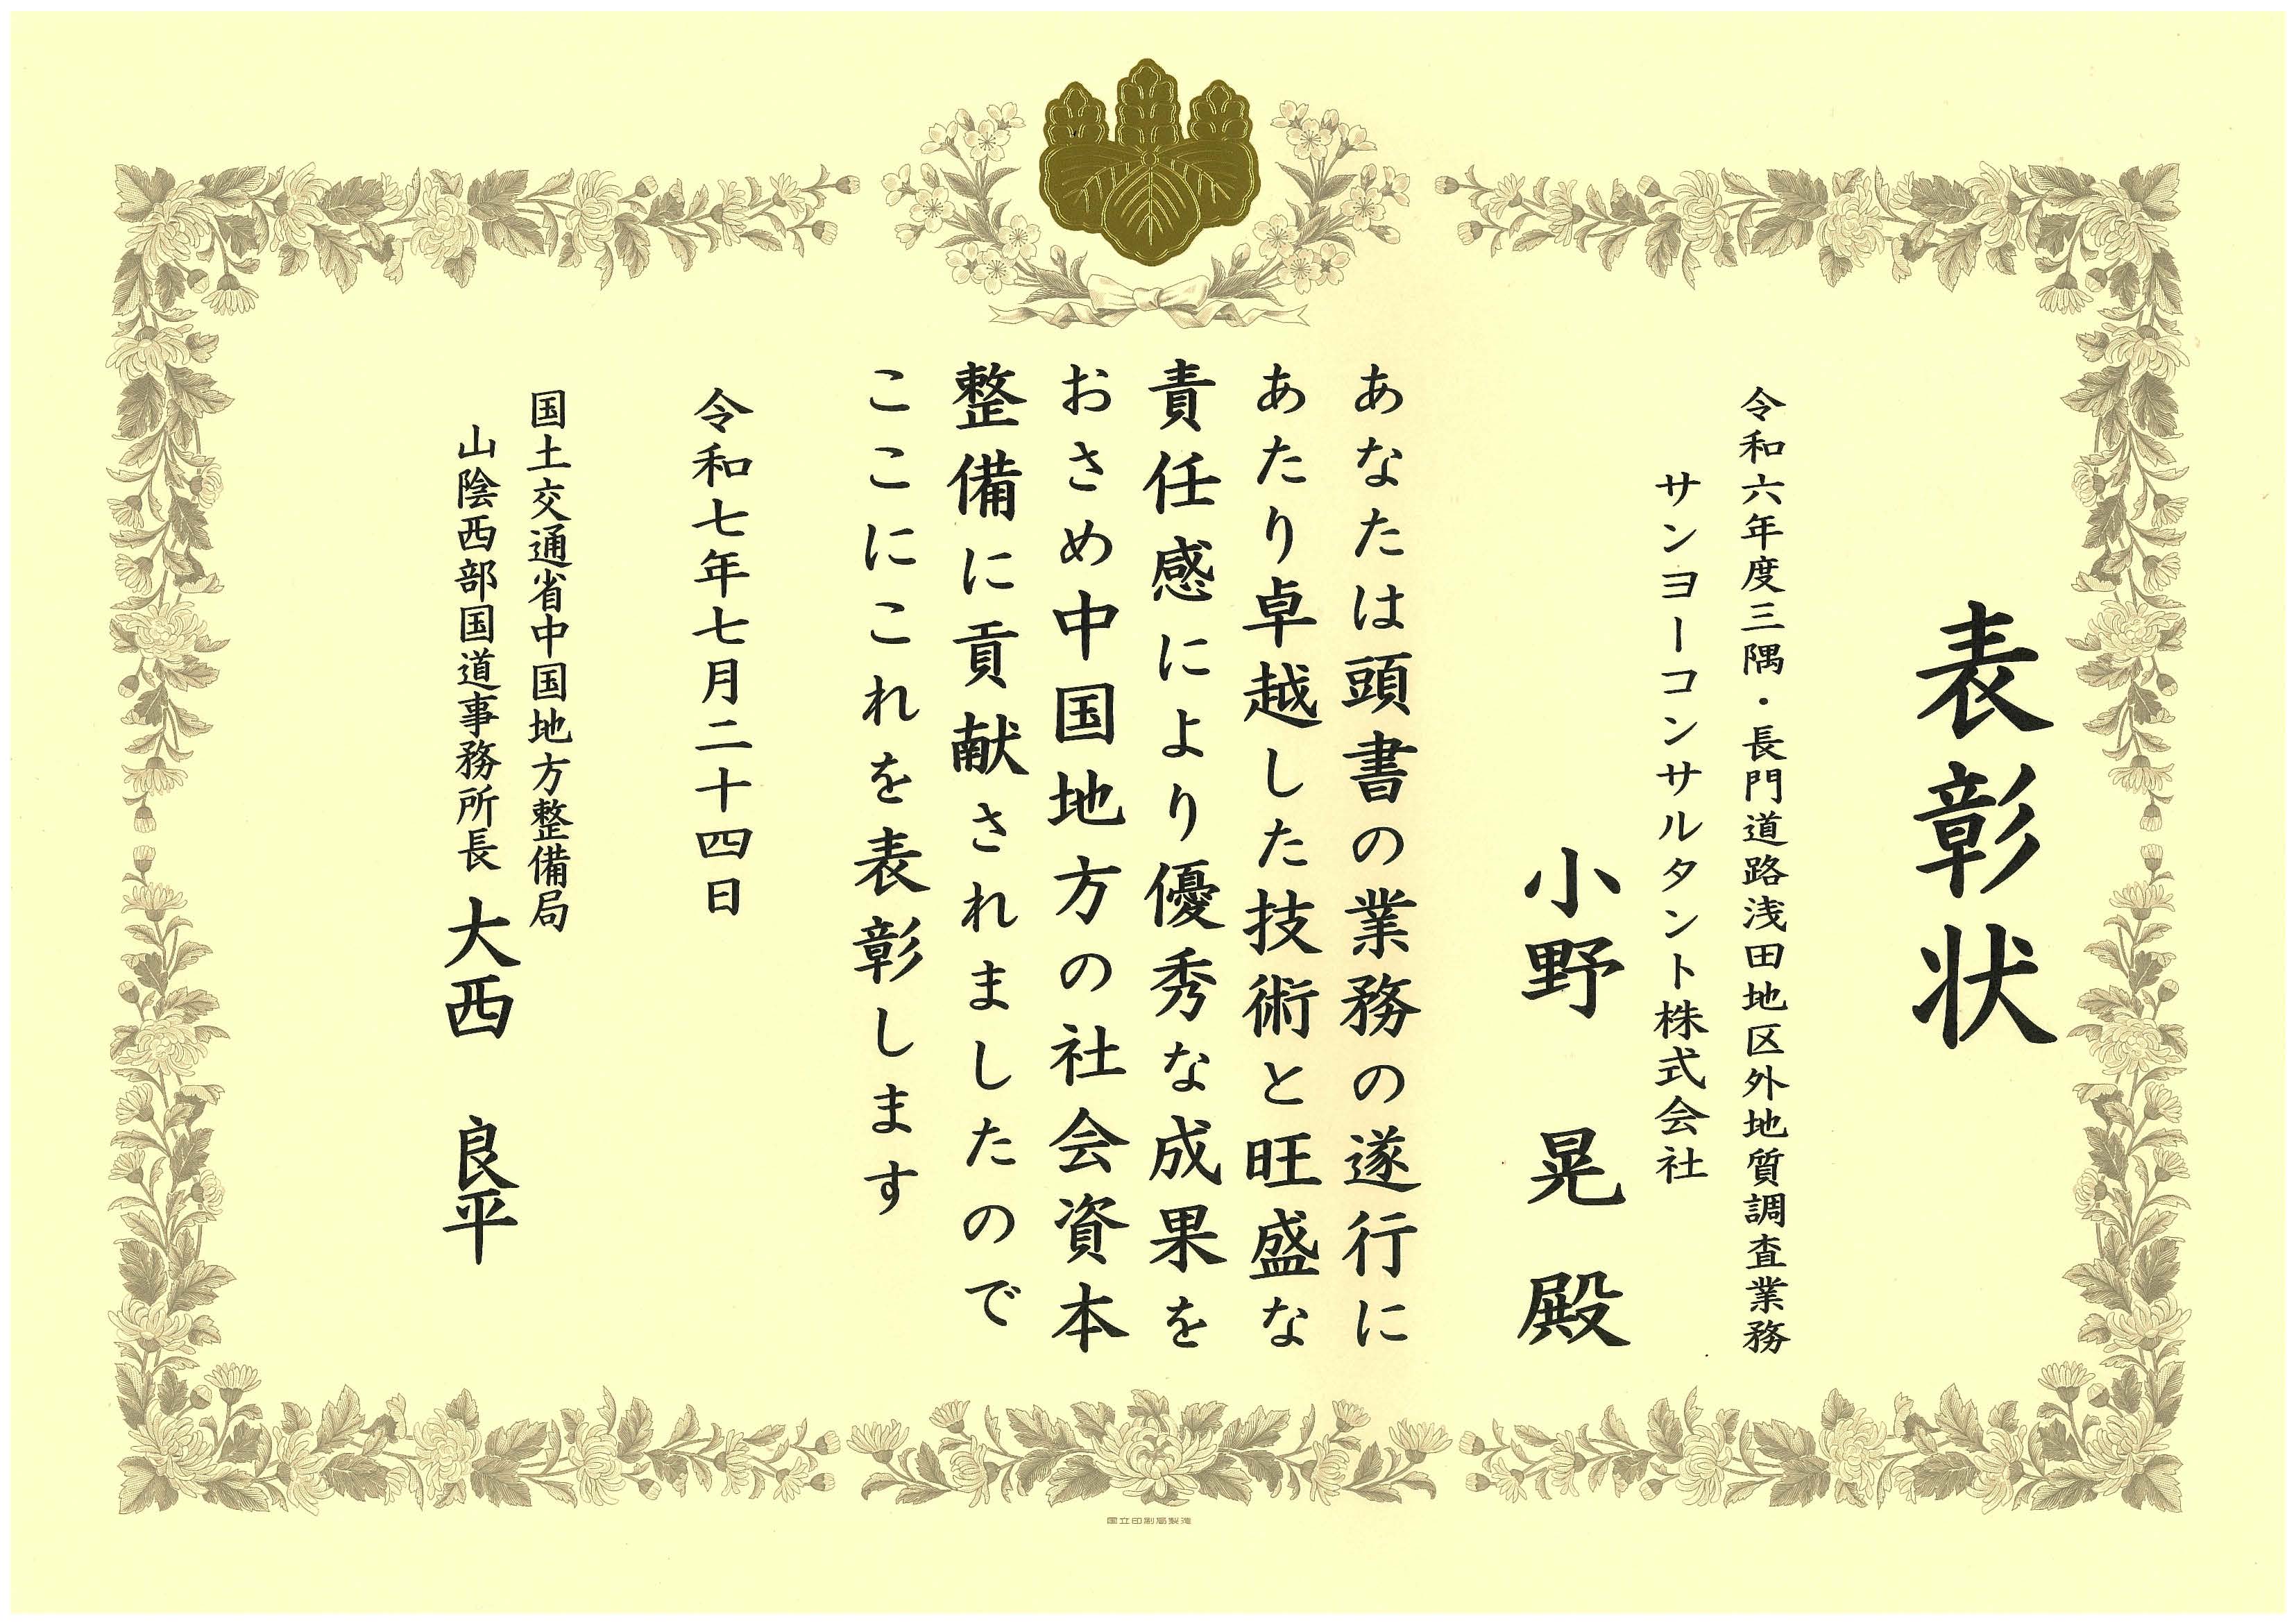 表彰状
令和六年度三隅・長門道路浅田地区外地質調査業務
サンヨーコンサルタント株式会社
小野 晃 殿
あなたは頭書の業務の遂行に
あたり卓越した技術と旺盛な
責任感により優秀な成果を
おさめ中国地方の社会資本
整備に貢献されましたので
ここにこれを表彰します
令和七年七月二十四日
国土交通省中国地方整備局
山陰西部国道事務所長 大西 良平
国立印刷局製造